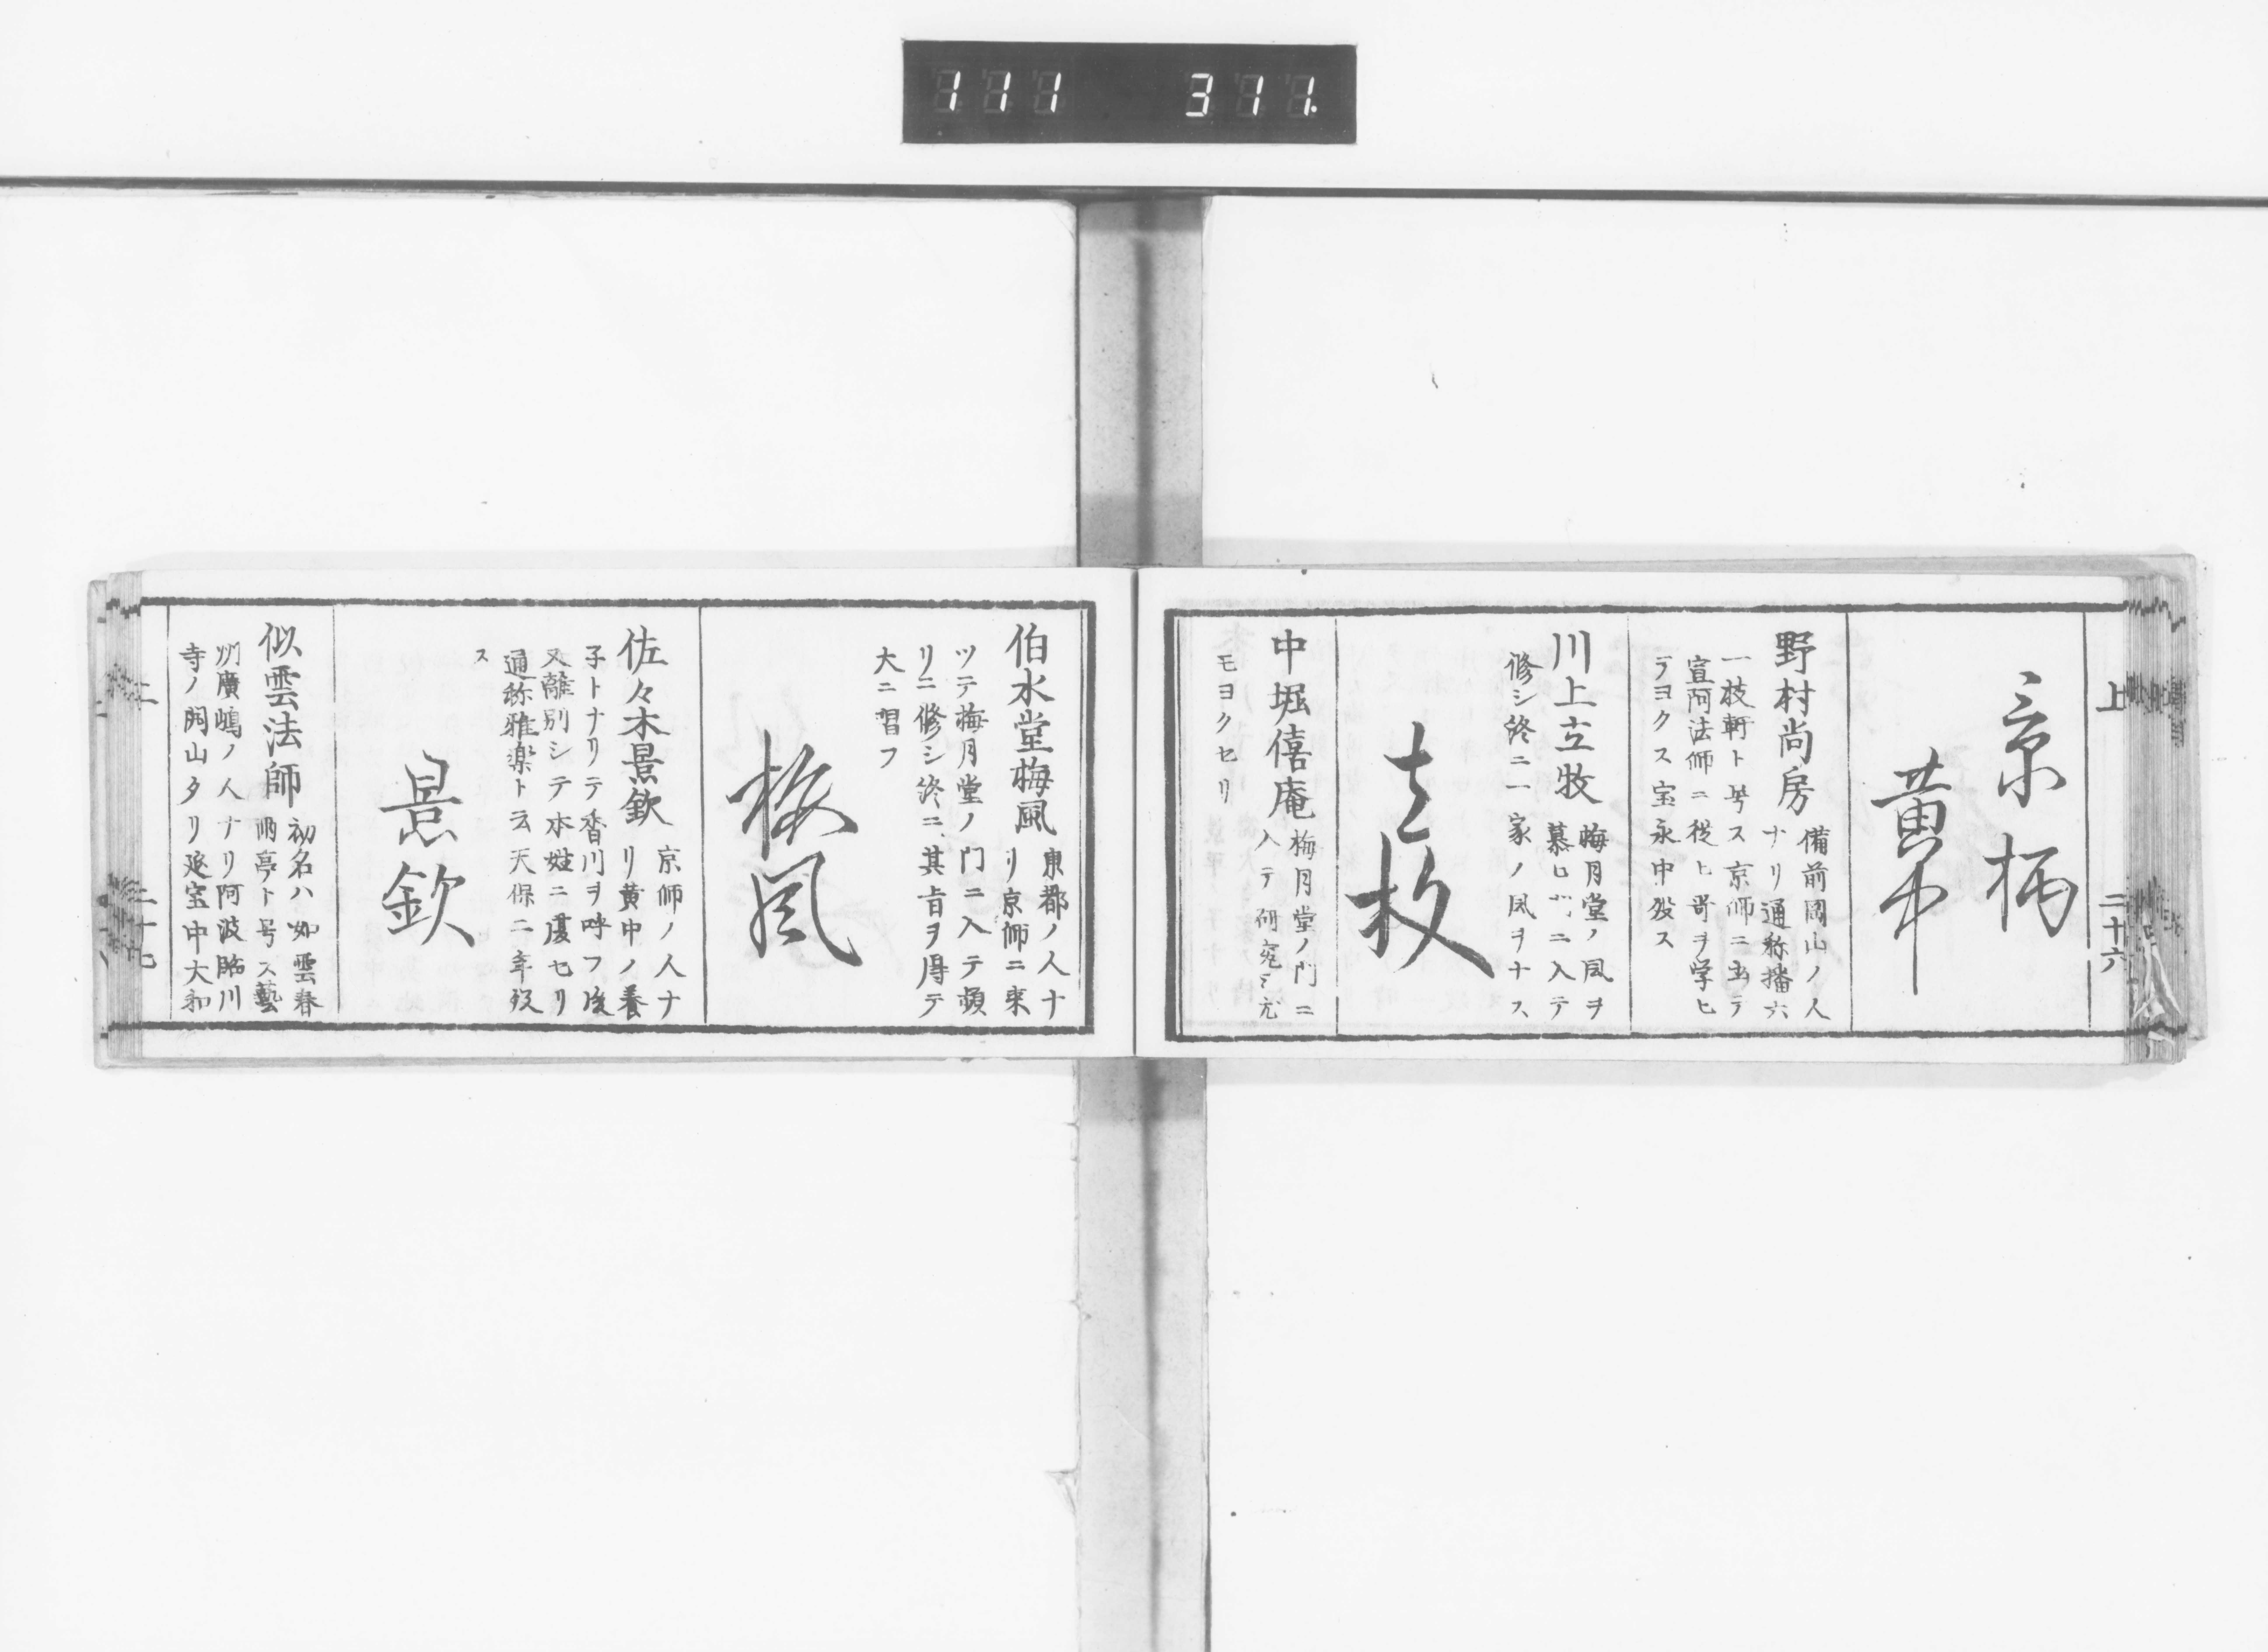 111 311.
上 二十六
景柄
黄中
野村尚房
備前岡山ノ人
ナリ通称播六
一枝軒ト号ス京師ニ出テ
宣阿法師ニ従ヒ哥ヲ学ヒ
テヨクス宝永中歿ス
川上立牧
梅月堂ノ風ヲ
慕ヒ門ニ入テ
修シ終ニ一家ノ風ヲナス
立牧
中堀僖庵
梅月堂ノ門ニ
入テ研究シ尤
モヨクセリ
伯水堂梅風
東都ノ人ナ
リ京師ニ来
ツテ梅月堂ノ門ニ入テ頻
リニ修シ終ニ其旨ヲ得テ
大ニ習フ
梅風
佐々木景欽
京師ノ人ナ
リ黄中ノ養
子トナリテ香川ヲ呼フ後
又離別シテ本姓ニ復セリ
通称雅楽ト云天保二年歿
ス
景欽
似雲法師
初名ハ如雲春
雨亭ト号ス藝
州廣嶋ノ人ナリ阿波脇川
寺ノ開山タリ延宝中大和
二十七